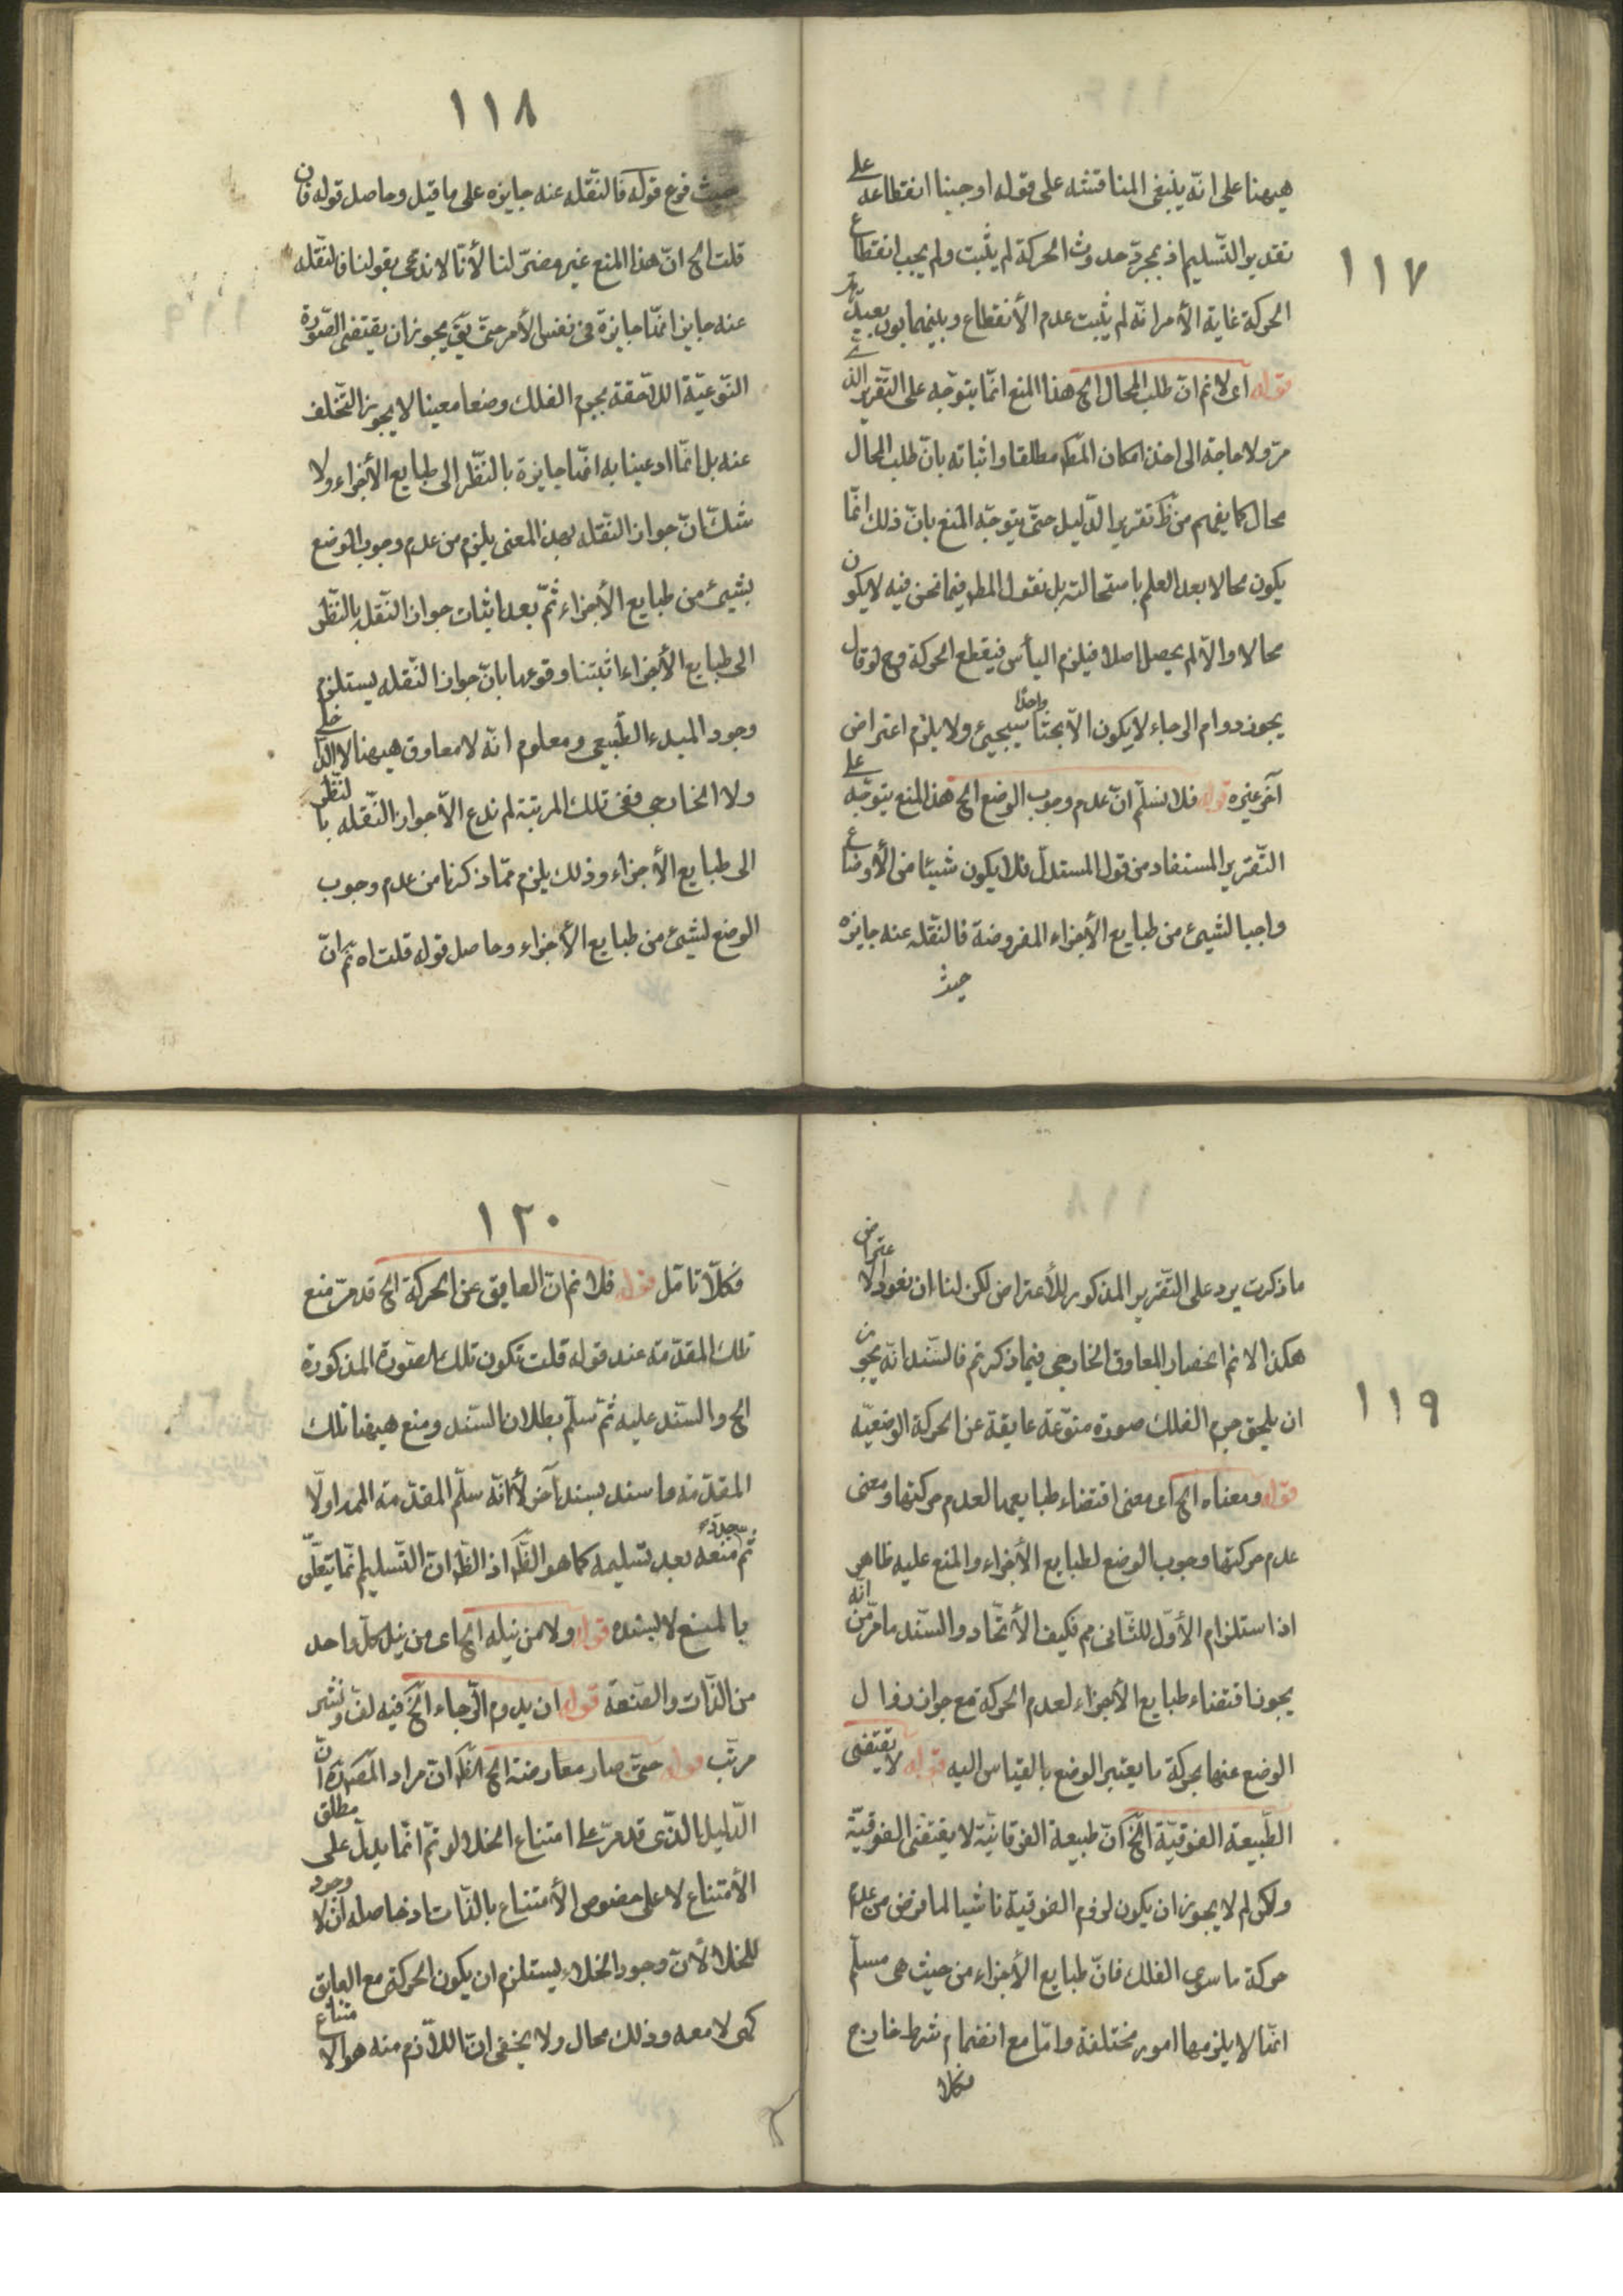 ١١٧
هيهنا على انّه ينبغى المناقشه على قوله اوجبنا انقطاعه على
تقدير التّسليم اذ بمجرّد حدوث الحركة لم يثبت ولم يجب انقطاع
الحركة غاية الأمر انّه لم يثبت عدم الأنقطاع وبينهما بون بعيد
قوله اى لانم انّ طلب المحال الخ هذا المنع انّما يتوجّه على التّقرير الذى
مرّ ولا حاجة الى اخذ امكان المط مطلقا واثباته بانّ طلب المحال
محال كما يفهم من ظ تقرير الدّليل حتّى يتوجّه المنع بانّ ذلك انّما
يكون محالا بعد العلم باستحالته بل نقول المط فيما نحن فيه لا يكون
محالا والّا لم يحصل اصلا فيلزم اليأس فينقطع الحركة وح لو قال
يجوز دوام الرجاء لا يكون الّا بحثا واحدا سيجيئ ولا يلزم اعتراض
آخر غيره قوله فلا نسلّم انّ عدم وجوب الوضع الخ هذا المنع يتوجّه على
التّقرير المستفاد من قول المستدلّ فلا يكون شيئا من الأوضاع
واجبا لشيئ من طبايع الأجزاء المفروضة فالنّقله عنه جايزه
حيث
١١٨
حيث فرع قوله فالنّقله عنه جايزه على ما قيل وحاصل قوله فان
قلت الخ انّ هذا المنع غير مضرّ لنا لأنّا لا ندّعى بقولنا فالنّقله
عنه جايز انّها جايزة فى نفس الأمر حتّى يق يجوز ان يقتضى الصّورة
النّوعيّة اللّاحقة بجرم الفلك وضعا معينا لا يجوز التّخلف
عنه بل انّما ادعينا به انّها جايزة بالنّظر الى طبايع الأجزاء ولا
شكّ انّ جواز النّقله بهذ المعنى يلزم من عدم وجوب الوضع
بشيئ من طبايع الأجزاء ثمّ بعد اثبات جواز النّقله بالنّظر
الى طبايع الأجزاء اثبتنا وقوعها بانّ جواز النّقله يستلزم
وجود المبدء الطّبيعى ومعلوم انّه لا معاوق هيهنا لا الدّاخلى
ولا الخارجى ففى تلك المرتبة لم ندع الّا جواز النّقله بالنّظر
الى طبايع الأجزاء وذلك يلزم ممّا ذكرنا من عدم وجوب
الوضع لشيئ من طبايع الأجزاء وحاصل قوله قلت اه ثم انّ
١١٩
ما ذكرت يرد على التّقرير المذكور للأعتراض لكن لنا ان نعود الاعتراض
هكذا لا نم انحصار المعاوق الخارجى فيما ذكرتم فالسّند انّه يجوز
ان يلحق جرم الفلك صورة منوّعة عايقة عن الحركة الوضعيّه
قوله ومعناه الخ اى معنى اقتضاء طبايعها لعدم حركتها ومعنى
عدم حركتها وجوب الوضع لطبايع الأجزاء والمنع عليه ظاهر
اذ استلزام الأوّل للثّانى مم فكيف الأتّحاد والسّند ما مرّ من انّه
يجوز اقتضاء طبايع الأجزاء لعدم الحركة مع جواز زوال
الوضع عنها بحركة ما يعتبر الوضع بالقياس اليه قوله لا يقتضى
الطّبيعة الفوقيّة الخ انّ طبيعة الفوقانيّة لا يقتضى الفوقيّة
ولكن لم لا يجوز ان يكون لزوم الفوقيّة ناشيا لما فرض من عدم
حركة ما سوى الفلك فانّ طبايع الأجزاء من حيث هى مسلّم
انّها لا يلزمها امور مختلفة وامّا مع انضمام شرط خارج
فكلا
١٢٠
فكلّا تامّل قوله فلا نم انّ العايق عن الحركة الخ قد مرّ منع
تلك المقدّمة عند قوله قلت تكون تلك الصّورة المذكورة
الخ والسّند عليه ثمّ سلّم بطلان السّند ومنع هيهنا تلك
المقدّمة واسند بسند آخر لا انّه سلّم المقدّمة الممر اولّا
ثمّ منعه بعد تسليمه كما هو الظّ اذ الظّ انّ التّسليم انّما يتعلّق
بالمنع لا بسنده قوله ولا من نيله الخ اى من نيل كلّ واحد
من الذّات والصّفة قوله ان يدوم الرّجاء الخ فيه لفّ ونشر
مرتّب قوله حتّى صار معارضة الخ الظّ انّ مراد المص انّ
الدّليل الّذى قد مرّ على امتناع الخلا لو تمّ انّما يدلّ على مطلق
الأمتناع لا على خصوص الأمتناع بالذّات اذ حاصله انّ لا وجود
للخلا لأنّ وجود الخلاء يستلزم ان يكون الحركة مع العايق
كهى لا معه وذلك محال ولا يخفى انّ اللّازم منه هو الامتناع